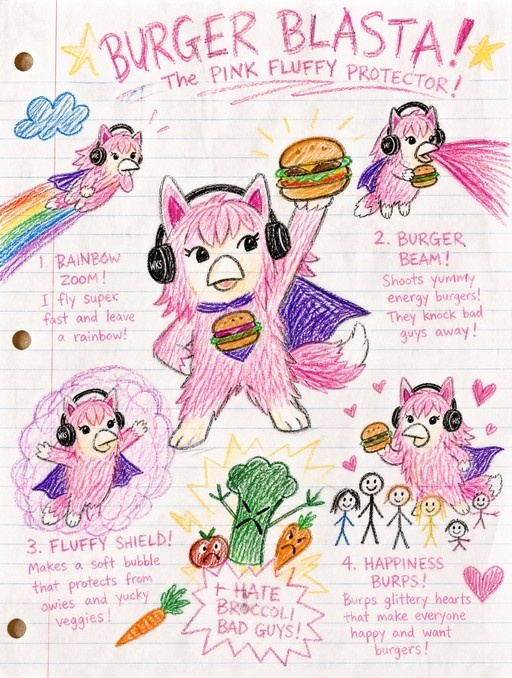 BURGER BLASTA!
The PINK FLUFFY PROTECTOR!
WKS
1. RAINBOW
ZOOM!
I fly super
fast and leave
a rainbow!
WKS
2. BURGER
BEAM!
Shoots yummy
energy burgers!
They knock bad
guys away!
WKS
3. FLUFFY SHIELD!
Makes a soft bubble
that protects from
owies and yucky
veggies!
+ HATE
BROCCOLI
BAD GUYS!
WKS
4. HAPPINESS
BURPS!
Burps glittery hearts
that make everyone
happy and want
burgers!